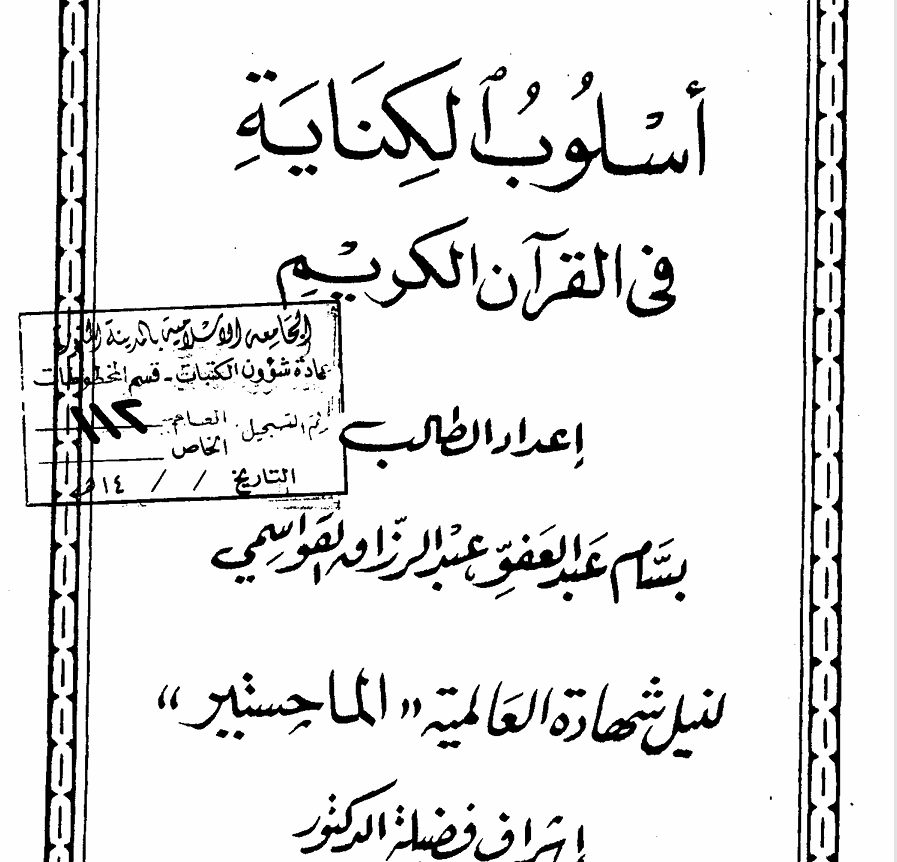 أسلوب الكناية
في القرآن الكريم
الجامعة الإسلامية بالمدينة المنورة
عمادة شؤون المكتبات - قسم المخطوطات
رقم التسجيل العام
الخاص
التاريخ / / ١٤هـ
إعداد الطالب
بسام عبد العفو عبد الرزاق القواسمي
لنيل شهادة العالمية "الماجستير"
إشراف فضيلة الدكتور